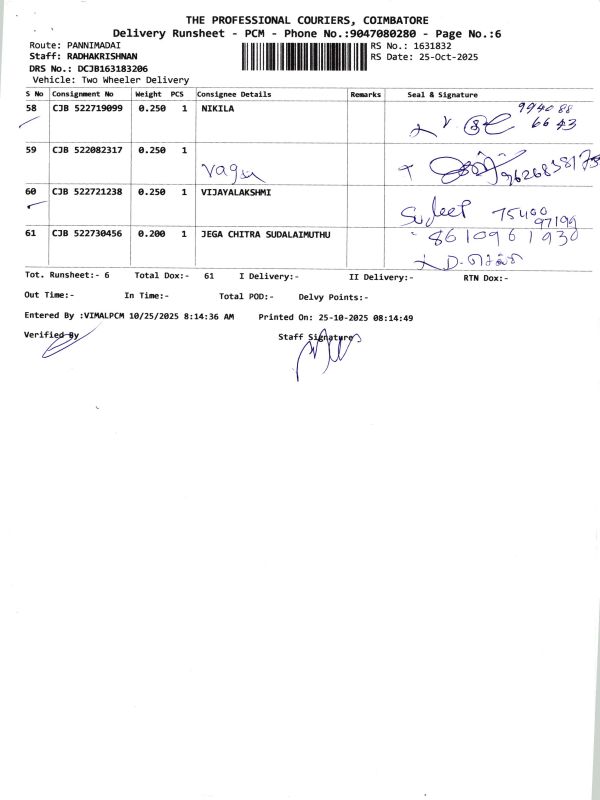 THE PROFESSIONAL COURIERS, COIMBATORE
Delivery Runsheet - PCM - Phone No.:9047080280 - Page No.:6
Route: PANNIMADAI
RS No.: 1631832
Staff: RADHAKRISHNAN
RS Date: 25-Oct-2025
DRS No.: DCJB163183206
Vehicle: Two Wheeler Delivery
S No Consignment No Weight PCS Consignee Details Remarks Seal & Signature
58 CJB 522719099 0.250 1 NIKILA
99408 8
66 43
59 CJB 522082317 0.250 1
60 CJB 522721238 0.250 1 VIJAYALAKSHMI
75400
97199
61 CJB 522730456 0.200 1 JEGA CHITRA SUDALAIMUTHU 8610961930
Tot. Runsheet:- 6 Total Dox:- 61 I Delivery:- II Delivery:- RTN Dox:-
Out Time:- In Time:- Total POD:- Delvy Points:-
Entered By :VIMALPCM 10/25/2025 8:14:36 AM Printed On: 25-10-2025 08:14:49
Verified By Staff Signature